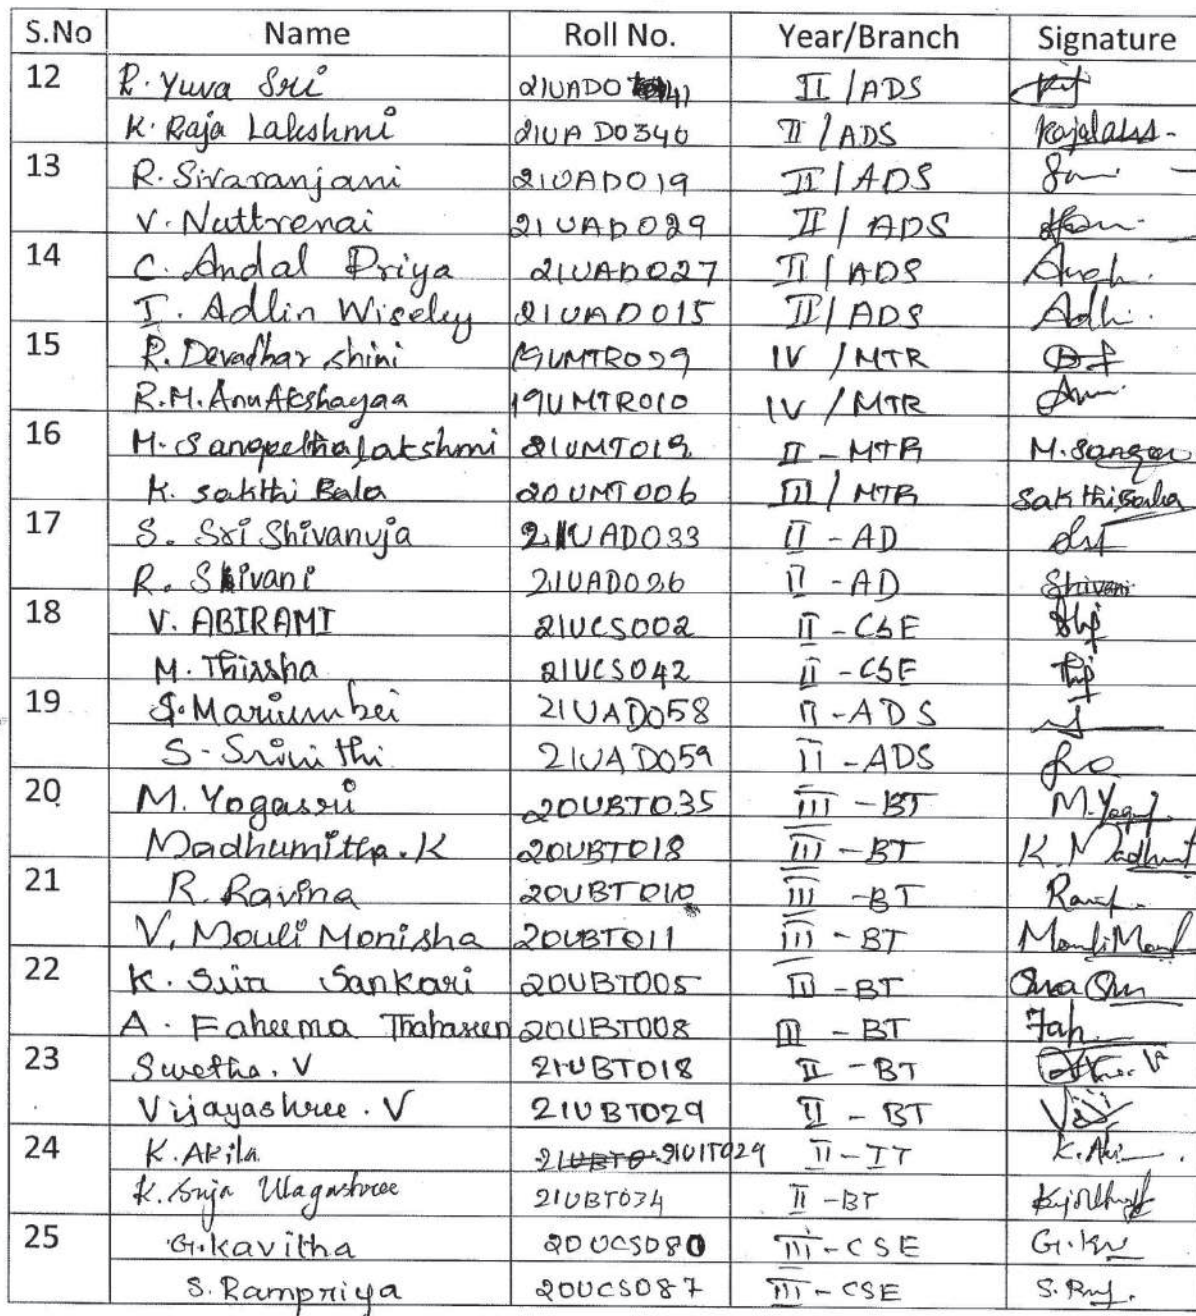 S.No Name Roll No. Year/Branch Signature
12 R. Yuva Sri 21UADO41 II / ADS
K. Raja Lakshmi 21UAD0340 II / ADS Rajalakss
13 R. Sivaranjani 21UAD019 II / ADS
V. Nattrenai 21UAD029 II / ADS
14 C. Andal Priya 21UAD027 II / ADS
I. Adlin Wiseley 21UAD015 II / ADS Adli
15 R. Devadharshini 19UMTR029 IV / MTR
R.M. AnuAkshayaa 19UMTR010 IV / MTR Anu
16 M. Sangeethalakshmi 21UMT019 II - MTR M. Sangee
K. Sakthi Bala 20UMT006 III / MTR SakthiBala
17 S. Sri Shivanuja 21UAD033 II - AD
R. Shivani 21UAD026 II - AD Shivani
18 V. ABIRAMI 21UCS002 II - CSE
M. Thissha 21UCS042 II - CSE
19 S. Mariumbei 21UAD058 II - ADS
S. Srinithi 21UAD059 II - ADS
20 M. Yogasri 20UBT035 III - BT M. Yoga
Madhumitha. K 20UBT018 III - BT K. Madhumit
21 R. Ravina 20UBT010 III - BT
V. Mouli Monisha 20UBT011 III - BT Mouli
22 K. Siva Sankari 20UBT005 III - BT
A. Faheema Thahaseen 20UBT008 III - BT Fah
23 Swetha. V 21UBT018 II - BT
Vijayashree. V 21UBT029 II - BT
24 K. Akila 21UIT029 II - IT K. Aki
K. Suja Ulagashree 21UBT034 II - BT
25 G. Kavitha 20UCS080 III - CSE G. Kav
S. Rampriya 20UCS087 III - CSE